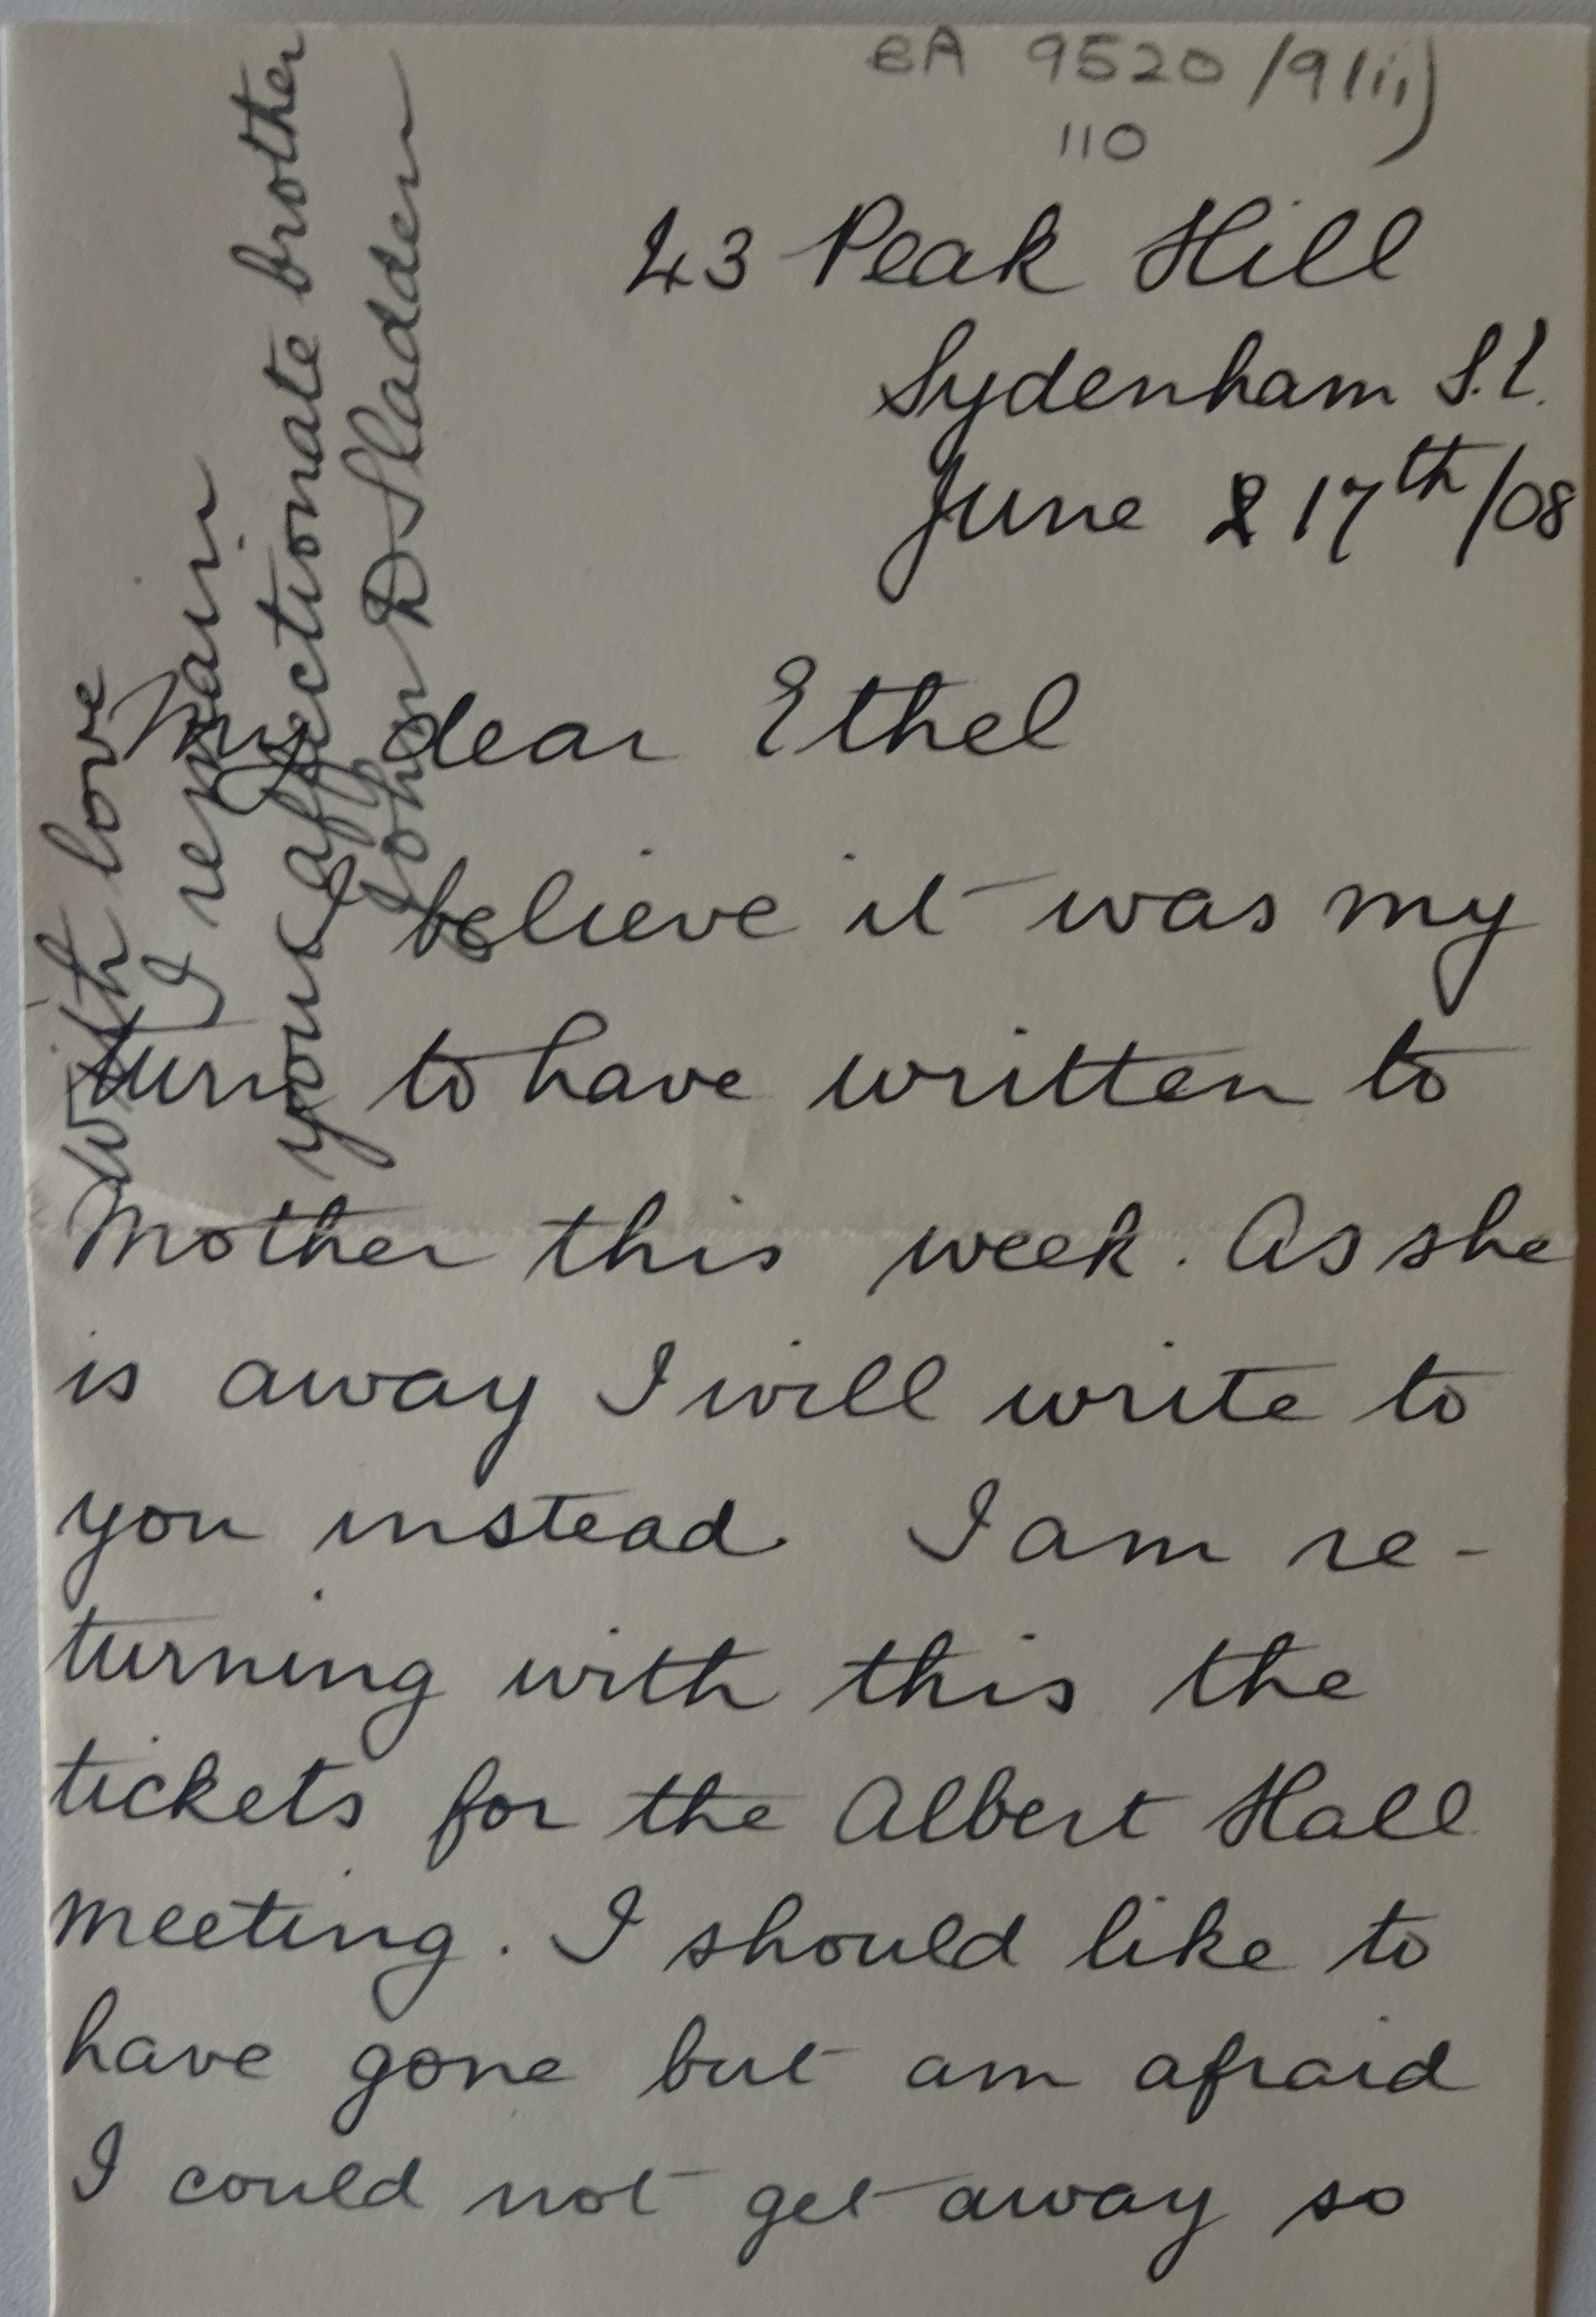 eA 9520/9(ii)
110
43 Peak Hill
Sydenham S.E.
June 17th/08
My dear Ethel
I believe it was my
turn to have written to
Mother this week. As she
is away I will write to
you instead. I am re-
turning with this the
tickets for the Albert Hall
meeting. I should like to
have gone but am afraid
I could not get away so
With love
I remain
your affectionate brother
John D Sladden